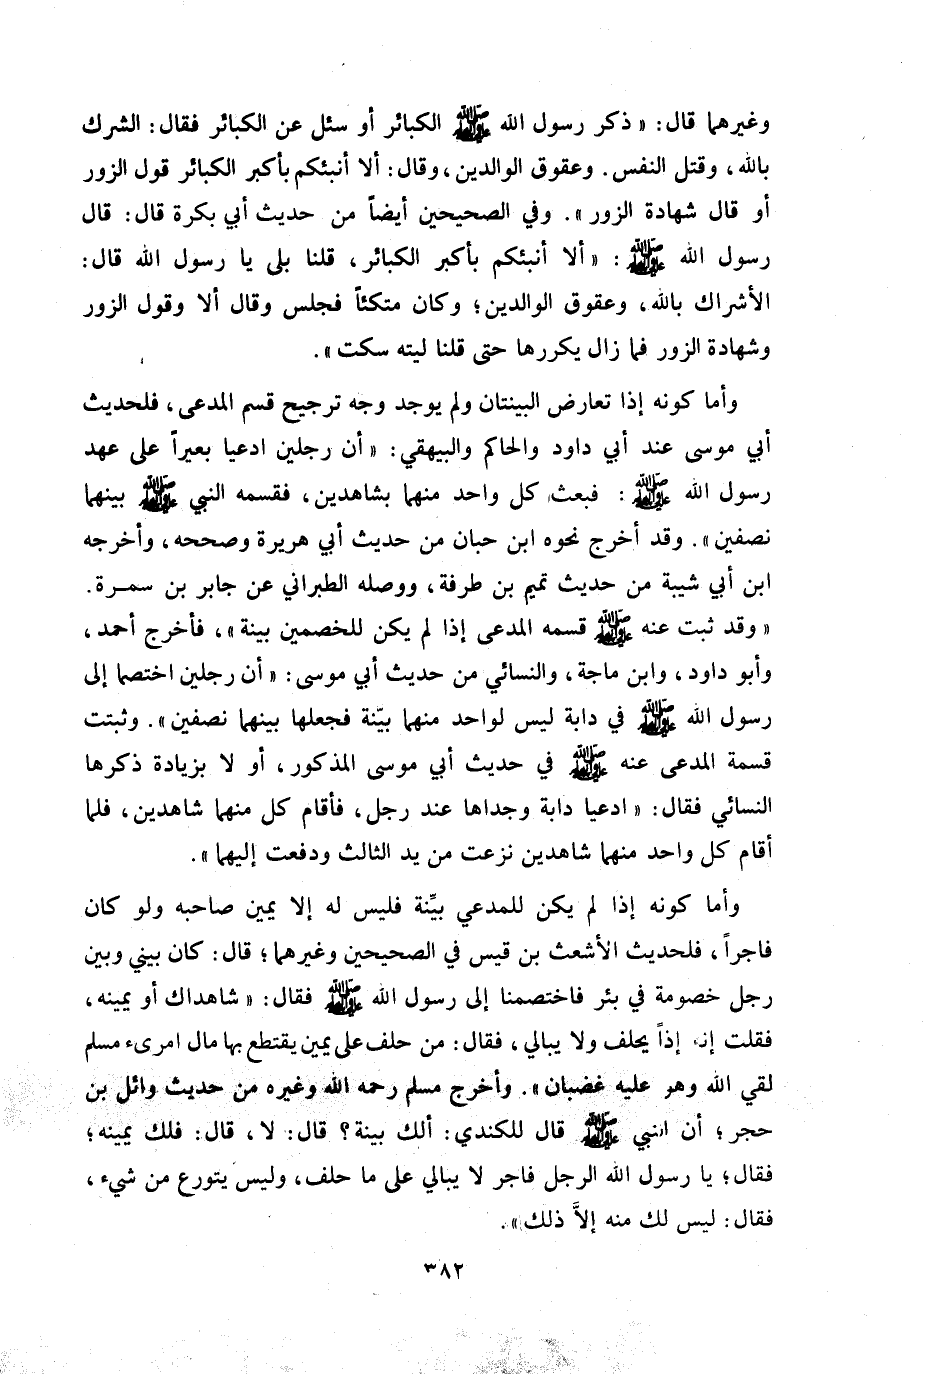 وغيرهما قال: «ذكر رسول الله ﷺ الكبائر أو سئل عن الكبائر فقال: الشرك
بالله، وقتل النفس. وعقوق الوالدين، وقال: ألا أنبئكم بأكبر الكبائر قول الزور
أو قال شهادة الزور». وفي الصحيحين أيضاً من حديث أبي بكرة قال: قال
رسول الله ﷺ: «ألا أنبئكم بأكبر الكبائر، قلنا بلى يا رسول الله قال:
الأشراك بالله، وعقوق الوالدين؛ وكان متكئاً فجلس وقال ألا وقول الزور
وشهادة الزور فما زال يكررها حتى قلنا ليته سكت».
وأما كونه إذا تعارض البينتان ولم يوجد وجه ترجيح قسم المدعى، فلحديث
أبي موسى عند أبي داود والحاكم والبيهقي: «أن رجلين ادعيا بعيراً على عهد
رسول الله ﷺ: فبعث كل واحد منهما بشاهدين، فقسمه النبي ﷺ بينهما
نصفين». وقد أخرج نحوه ابن حبان من حديث أبي هريرة وصححه، وأخرجه
ابن أبي شيبة من حديث تميم بن طرفة، ووصله الطبراني عن جابر بن سمرة.
«وقد ثبت عنه ﷺ قسمه المدعى إذا لم يكن للخصمين بينة»، فأخرج أحمد،
وأبو داود، وابن ماجة، والنسائي من حديث أبي موسى: «أن رجلين اختصما إلى
رسول الله ﷺ في دابة ليس لواحد منهما بيّنة فجعلها بينهما نصفين». وثبتت
قسمة المدعى عنه ﷺ في حديث أبي موسى المذكور، أو لا بزيادة ذكرها
النسائي فقال: «ادعيا دابة وجداها عند رجل، فأقام كل منهما شاهدين، فلما
أقام كل واحد منهما شاهدين نزعت من يد الثالث ودفعت إليهما».
وأما كونه إذا لم يكن للمدعي بيِّنة فليس له إلا يمين صاحبه ولو كان
فاجراً، فلحديث الأشعث بن قيس في الصحيحين وغيرهما؛ قال: كان بيني وبين
رجل خصومة في بئر فاختصمنا إلى رسول الله ﷺ فقال: «شاهداك أو يمينه،
فقلت إنه إذاً يحلف ولا يبالي، فقال: من حلف على يمين يقتطع بها مال امرىء مسلم
لقي الله وهو عليه غضبان». وأخرج مسلم رحمه الله وغيره من حديث وائل بن
حجر؛ أن النبي ﷺ قال للكندي: ألك بينة؟ قال: لا، قال: فلك يمينه؛
فقال؛ يا رسول الله الرجل فاجر لا يبالي على ما حلف، وليس يتورع من شيء،
فقال: ليس لك منه إلاَّ ذلك».
٣٨٢